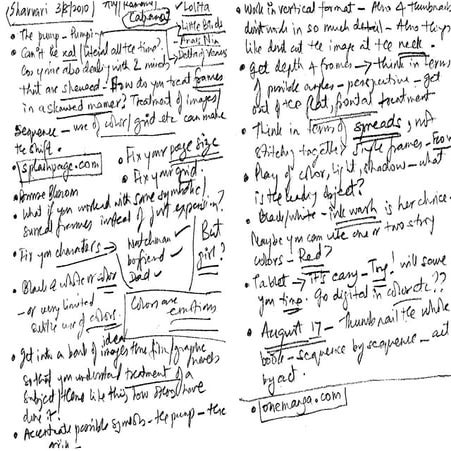 (Sharvari 3/8/2010)
Cabaret
✓ Lolita
Little Birds
Anais Nin
Delta of Venus
• The pump - Pumpi
• Can't be real/literal all the time?
Coz you're also dealing with 2 minds
that are skewed - How do you treat frames
in a skewed manner? Treatment of images/
sequence - use of color/grid etc can make
the shift.
• splashpage.com
• Fix your page size
• Fix your grid.
• Blossom
• What if you worked with some symbolic/
surreal frames instead of just expression?
• Fix your characters →
Watchman ✓
boyfriend ✓
Dad ✓
But girl?
• Black & white or color
- or very limited
subtle use of colors.
Colors are
emotions
idea
• Get into a bank of images thru film/graphic
novels
so that you understand treatment of a
subject/theme like this, how others have
done it!
• Accentuate possible symbols - the pump - the
• Work in vertical format - Also 4 thumbnails
don't work in so much detail - Also things
like don't cut the image at the neck.
• Get depth 4 frames → think in terms
of possible angles - perspective - get
out of the flat, frontal treatment
• Think in terms of spreads, not
stitching together single frames -
• Play of color, light, shadow - what
is the leading object?
• Black/white - ink wash is her choice.
Maybe you can use one or two story
colors - Red?
• Tablet → it's easy - Try! will save
you time. Go digital in color etc??
• August 17 - Thumbnail the whole
book - sequence by sequence - act
by act.
• onemanga.com